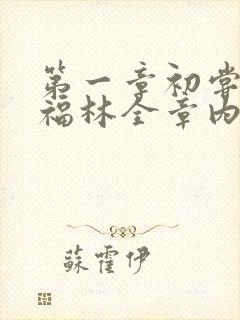 第一章初尝
福林全章内
蘇霍伊